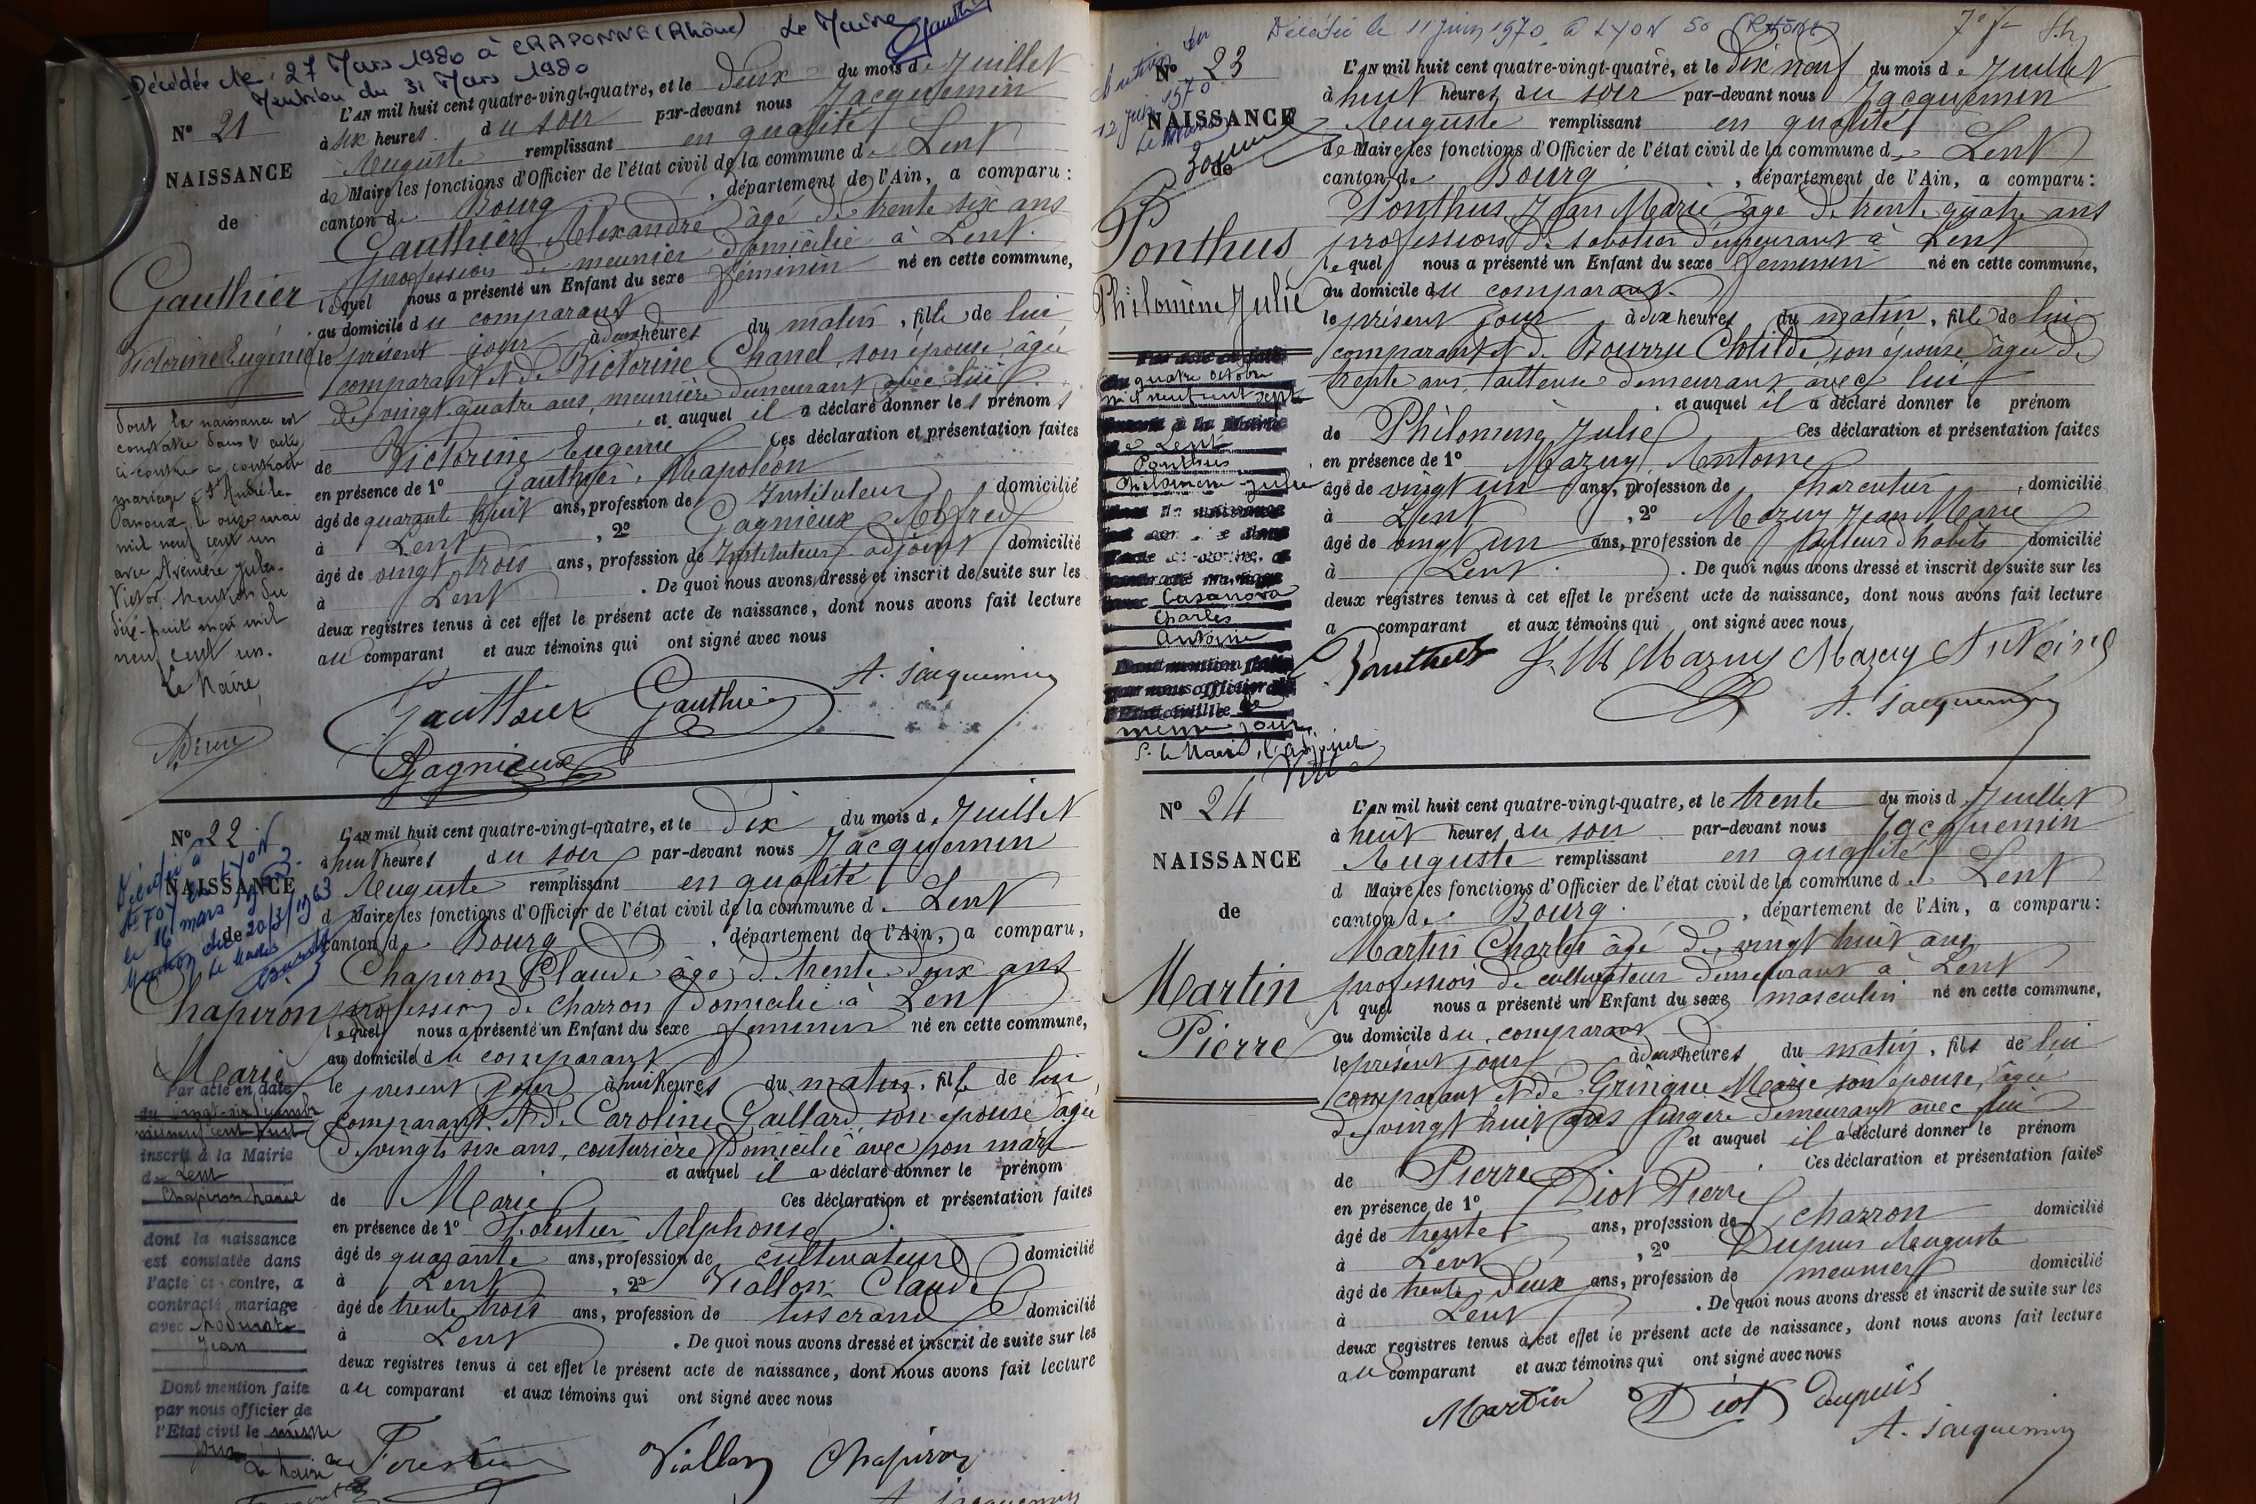 Décédée le 27 Mars 1980 à CRAPONNE (Rhône) Le Maire
Mention du 31 Mars 1980
N° 21
NAISSANCE
de
Gauthier
Victorine Eugénie
dont la naissance est
constatée dans l'acte
ci-contre a contracté
mariage à St André le
Panoux le onze mai
mil neuf cent un
avec
Victor. Mention du
dix-huit mai mil
neuf cent un.
Le Maire
L'AN mil huit cent quatre-vingt-quatre, et le deux du mois de Juillet
à six heures du soir par-devant nous Jacquemin
Auguste remplissant en qualité
de Maire les fonctions d'Officier de l'état civil de la commune de Lent
canton de Bourg, département de l'Ain, a comparu:
Gauthier Alexandre âgé de trente six ans
profession de meunier domicilié à Lent.
lequel nous a présenté un Enfant du sexe féminin né en cette commune,
au domicile du comparant
le présent jour à deux heures du matin, fille de lui
comparant et de Victorine Chanel, son épouse, âgée
de vingt quatre ans, meunière demeurant avec lui
et auquel il a déclaré donner les prénoms
de Victorine Eugénie Ces déclaration et présentation faites
en présence de 1° Gauthier, Napoléon
âgé de quarante huit ans, profession de Instituteur domicilié
à Lent, 2° Gagnieux Alfred
âgé de vingt trois ans, profession de Instituteur adjoint domicilié
à Lent. De quoi nous avons dressé et inscrit de suite sur les
deux registres tenus à cet effet le présent acte de naissance, dont nous avons fait lecture
au comparant et aux témoins qui ont signé avec nous
A. Jacquemin
Gauthier Gauthier
Gagnieux
N° 22
Décédée à
Ste FOY lès LYON
le 16 mars 1963.
Mention du 20/3/1963
Le Maire
NAISSANCE
de
Chapiron
Marie
Par acte en date
du vingt-six
mil neuf cent huit
inscrit à la Mairie
de Lent
Chapiron Marie
dont la naissance
est constatée dans
l'acte ci-contre, a
contracté mariage
avec
Jean
Dont mention faite
par nous officier de
l'Etat civil le même
jour
Le Maire
L'AN mil huit cent quatre-vingt-quatre, et le dix du mois de Juillet
à huit heures du soir par-devant nous Jacquemin
Auguste remplissant en qualité
d Maire les fonctions d'Officier de l'état civil de la commune de Lent
canton de Bourg, département de l'Ain, a comparu,
Chapiron Claude âgé de trente deux ans
profession de charron domicilié à Lent
lequel nous a présenté un Enfant du sexe féminin né en cette commune,
au domicile du comparant
le présent jour à huit heures du matin, fille de lui
comparant, et de Caroline Gaillard, son épouse âgée
de vingt six ans, couturière, domicilié avec son mari
et auquel il a déclaré donner le prénom
de Marie Ces déclaration et présentation faites
en présence de 1° Forestier Alphonse
âgé de quarante ans, profession de cultivateur domicilié
à Lent, 2° Viallon Claude
âgé de trente trois ans, profession de tisserand domicilié
à Lent. De quoi nous avons dressé et inscrit de suite sur les
deux registres tenus à cet effet le présent acte de naissance, dont nous avons fait lecture
au comparant et aux témoins qui ont signé avec nous
Forestier Viallon Chapiron
A. Jacquemin
Décédée le 11 juin 1970 à LYON 5e (Rhône)
N° 23
Mention du
12 juin 1970
Le Maire
NAISSANCE
de
Ponthus
Philomène Julie
Par acte en date
du quatre octobre
mil neuf cent sept
inscrit à la Mairie
de Lent
Ponthus
Philomène Julie
dont la naissance
est constatée dans
l'acte ci-contre, a
contracté mariage
avec Casanova
Charles
Antoine
Dont mention faite
par nous officier de
l'Etat civil le
même jour
P. le Maire, l'adjoint
L'AN mil huit cent quatre-vingt-quatre, et le dix neuf du mois de Juillet
à huit heures du soir par-devant nous Jacquemin
Auguste remplissant en qualité
de Maire les fonctions d'Officier de l'état civil de la commune de Lent
canton de Bourg, département de l'Ain, a comparu:
Ponthus Jean Marie âgé de trente quatre ans
profession de sabotier demeurant à Lent
lequel nous a présenté un Enfant du sexe féminin né en cette commune,
au domicile du comparant.
le présent jour à dix heures du matin, fille de lui
comparant et de Bourru Clotilde, son épouse âgée de
trente ans, tailleuse demeurant avec lui
et auquel il a déclaré donner le prénom
de Philomène Julie Ces déclaration et présentation faites
en présence de 1° Mazuy, Antoine
âgé de vingt un ans, profession de charcutier, domicilié
à Lent, 2° Mazuy Jean Marie
âgé de vingt un ans, profession de tailleur d'habits domicilié
à Lent. De quoi nous avons dressé et inscrit de suite sur les
deux registres tenus à cet effet le présent acte de naissance, dont nous avons fait lecture
a comparant et aux témoins qui ont signé avec nous
Ponthus J. M. Mazuy Mazuy Antoine
A. Jacquemin
N° 24
NAISSANCE
de
Martin
Pierre
L'AN mil huit cent quatre-vingt-quatre, et le trente du mois d Juillet
à huit heures du soir par-devant nous Jacquemin
Auguste remplissant en qualité
d Maire les fonctions d'Officier de l'état civil de la commune de Lent
canton de Bourg, département de l'Ain, a comparu:
Martin Charles âgé de vingt huit ans
profession de cultivateur demeurant à Lent
l quel nous a présenté un Enfant du sexe masculin né en cette commune,
au domicile du comparant
le présent jour à deux heures du matin, fils de lui
comparant et de Gringue Marie son épouse, âgée
de vingt huit ans lingère demeurant avec lui
et auquel il a déclaré donner le prénom
de Pierre Ces déclaration et présentation faites
en présence de 1° Diot Pierre
âgé de trente ans, profession de charron domicilié
à Lent, 2° Dupuis Auguste
âgé de trente deux ans, profession de meunier domicilié
à Lent. De quoi nous avons dressé et inscrit de suite sur les
deux registres tenus à cet effet le présent acte de naissance, dont nous avons fait lecture
au comparant et aux témoins qui ont signé avec nous
Martin Diot Dupuis
A. Jacquemin